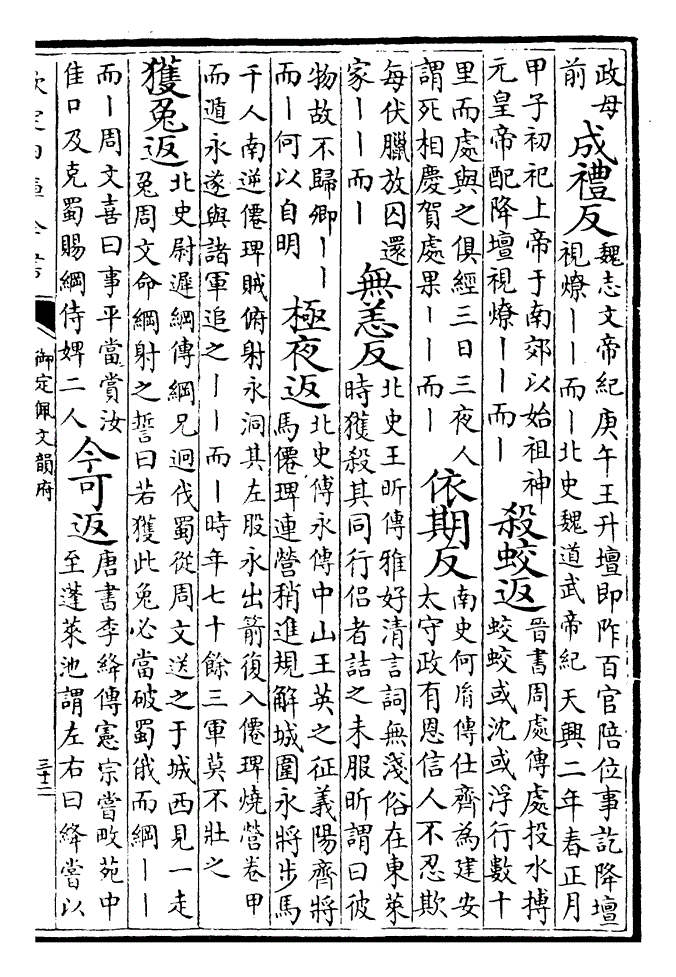 政母
前
成禮反
魏志文帝紀庚午王升壇即阼百官陪位事訖降壇
視燎丨丨而丨北史魏道武帝紀天興二年春正月
甲子初祀上帝于南郊以始祖神
元皇帝配降壇視燎丨丨而丨
殺蛟返
晉書周處傳處投水搏
蛟蛟或沈或浮行數十
里而處與之俱經三日三夜人
謂死相慶賀處果丨丨而丨
依期反
南史何胤傳仕齊為建安
太守政有恩信人不忍欺
每伏臘放囚還
家丨丨而丨
無恙反
北史王昕傳雅好清言詞無淺俗在東萊
時獲殺其同行侶者詰之未服昕謂曰彼
物故不歸卿丨丨
而丨何以自明
極夜返
北史傅永傳中山王英之征義陽齊將
馬僊琕連營稍進規解城圍永將步馬
千人南逆僊琕賊俯射永洞其左股永出箭復入僊琕燒營卷甲
而遁永遂與諸軍追之丨丨而丨時年七十餘三軍莫不壯之
獲兔返
北史尉遲綱傳綱兄迥伐蜀從周文送之于城西見一走
兔周文命綱射之誓曰若獲此兔必當破蜀俄而綱丨丨
而丨周文喜曰事平當賞汝
佳口及克蜀賜綱侍婢二人
今可返
唐書李絳傳憲宗嘗畋苑中
至蓬萊池謂左右曰絳嘗以
欽定四庫全書
御定佩文韻府
三十二